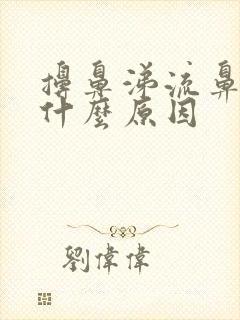 擤鼻涕流鼻
什麼原因
劉偉偉